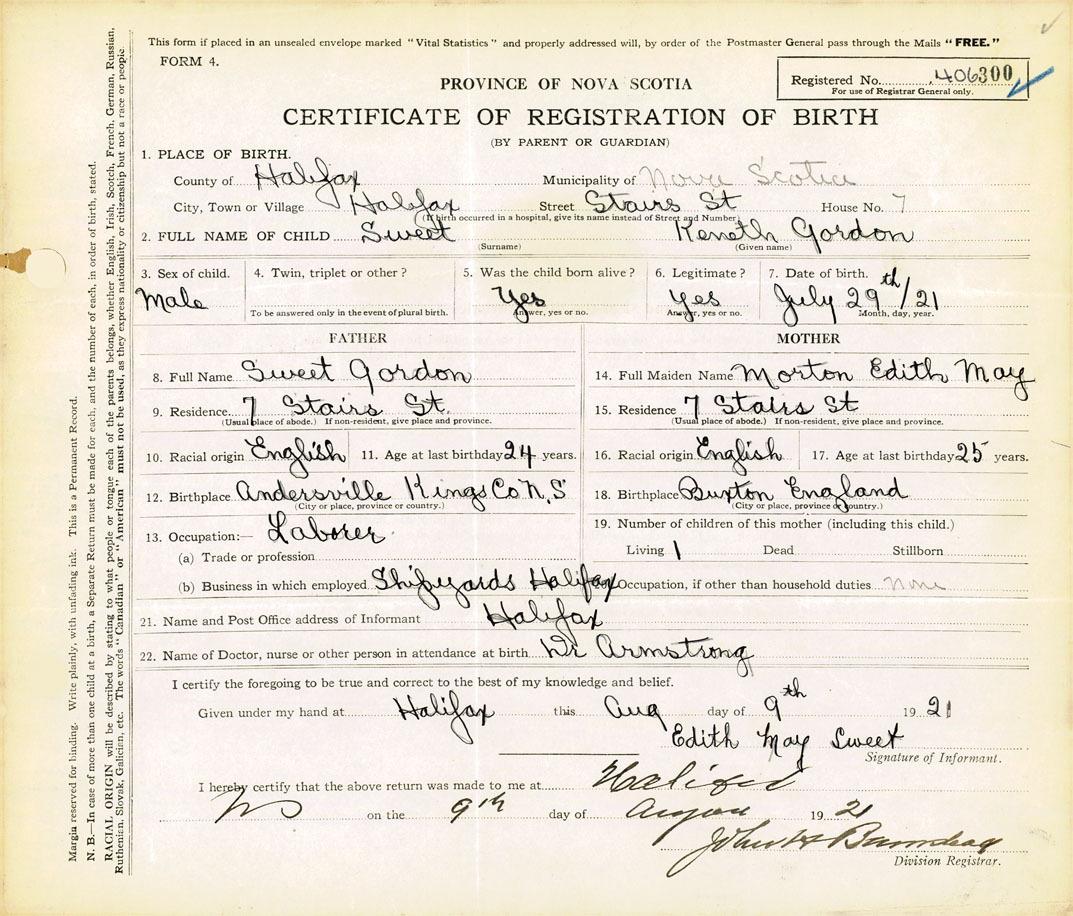 This form if placed in an unsealed envelope marked "Vital Statistics" and properly addressed will, by order of the Postmaster General pass through the Mails "FREE."
FORM 4.
Registered No. 406300
For use of Registrar General only.
PROVINCE OF NOVA SCOTIA
CERTIFICATE OF REGISTRATION OF BIRTH
(BY PARENT OR GUARDIAN)
1. PLACE OF BIRTH.
County of Halifax Municipality of Nova Scotia
City, Town or Village Halafax Street Stairs St House No. 7
(If birth occurred in a hospital, give its name instead of Street and Number)
2. FULL NAME OF CHILD Sweet Keneth Gordon
(Surname) (Given name)
3. Sex of child. 4. Twin, triplet or other? 5. Was the child born alive? 6. Legitimate? 7. Date of birth.
Male Yes Yes July 29th/21
To be answered only in the event of plural birth. Answer, yes or no. Answer, yes or no. Month, day, year.
FATHER MOTHER
8. Full Name Sweet Gordon 14. Full Maiden Name Morton Edith May
9. Residence 7 Stairs St. 15. Residence 7 Stairs St
(Usual place of abode.) If non-resident, give place and province. (Usual place of abode.) If non-resident, give place and province.
10. Racial origin English 11. Age at last birthday 24 years. 16. Racial origin English 17. Age at last birthday 25 years.
12. Birthplace Andersville Kings Co N.S 18. Birthplace Buxton England
(City or place, province or country.) (City or place, province or country.)
13. Occupation:— Laborer 19. Number of children of this mother (including this child.)
(a) Trade or profession Living 1 Dead Stillborn
(b) Business in which employed Shipyards Halifax Occupation, if other than household duties None
21. Name and Post Office address of Informant Halifax
22. Name of Doctor, nurse or other person in attendance at birth Dr Armstrong
I certify the foregoing to be true and correct to the best of my knowledge and belief.
Given under my hand at Halifax this Aug day of 9th 1921
Edith May Sweet
Signature of Informant.
I hereby certify that the above return was made to me at Halifax
NS on the 9th day of August 1921
John H
Division Registrar.
Margin reserved for binding. Write plainly, with unfading ink. This is a Permanent Record.
N. B.—In case of more than one child at a birth, a Separate Return must be made for each, and the number of each, in order of birth, stated.
RACIAL ORIGIN will be described by stating to what people or tongue each of the parents belongs, whether English, Irish, Scotch, French, German, Russian,
Ruthenian, Slovak, Galician, etc. The words "Canadian" or "American" must not be used, as they express nationality or citizenship but not a race or people